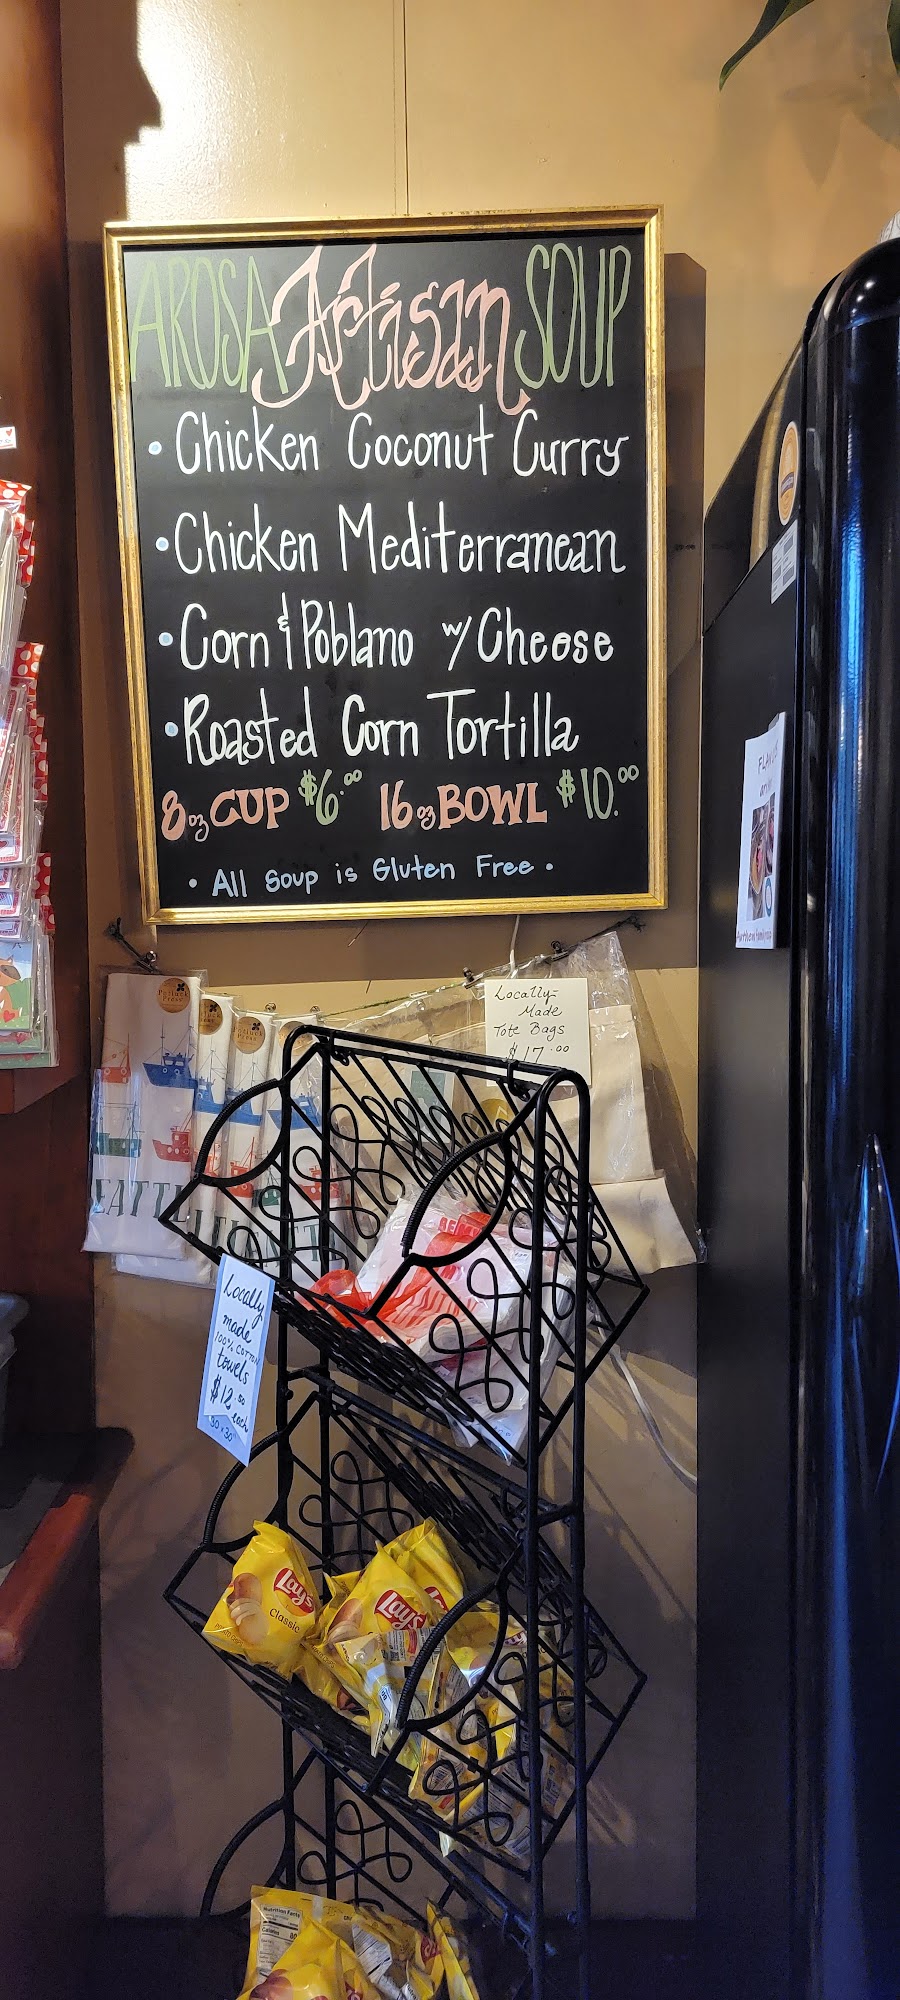 AROSA Artisan SOUP
• Chicken Coconut Curry
• Chicken Mediterranean
• Corn & Poblano w/ Cheese
• Roasted Corn Tortilla
8oz CUP $6.00 16oz BOWL $10.00
• All Soup is Gluten Free •
Potluck
Press
Locally-
Made
Tote Bags
$17.00
Locally
made
100% COTTON
towels
$12.50
each
30 x 30"
Lay's
Classic
Lay's
Nutrition Facts
Calories